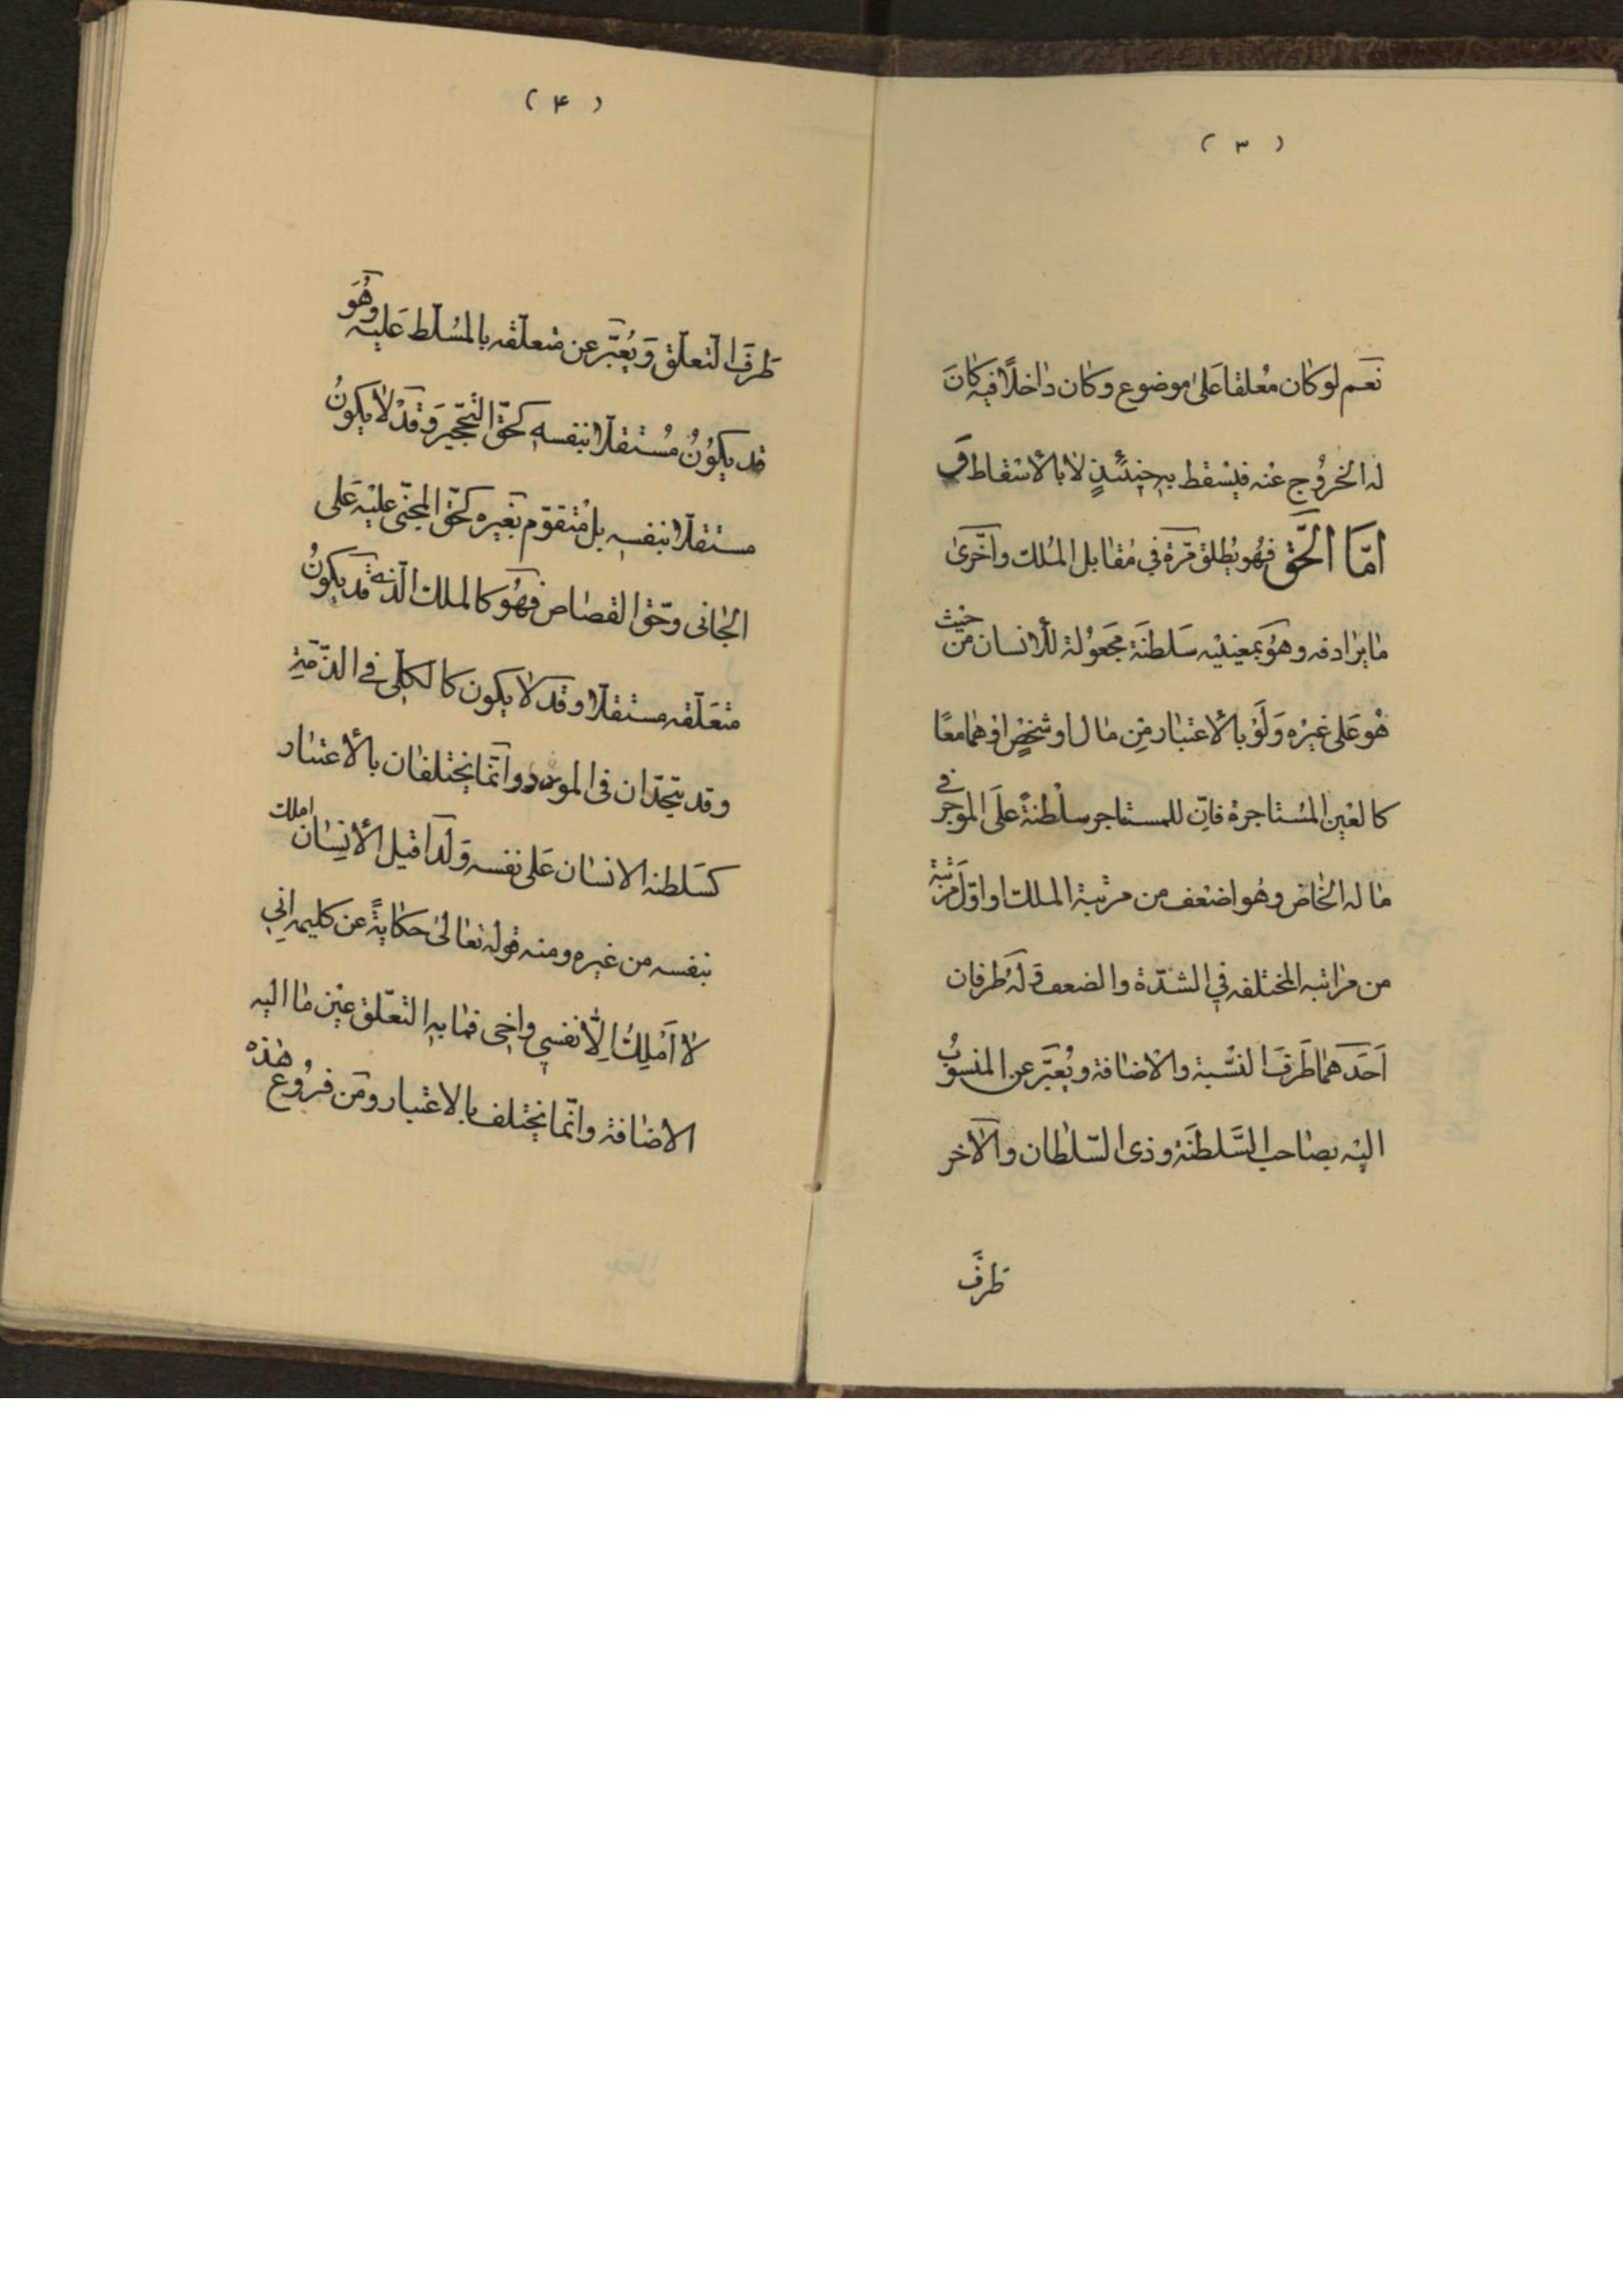 ( ٣ )
نعم لو كان معلقا على موضوع وكان داخلًا فيه كانَ
له الخروُج عنه فيسْقط به حينئذٍ لا بالأسْقاط وَ
امّا الحَق فهُو يُطلق مرّة في مقابل المُلك واُخرىٰ
ما يرادفه وهوَ بمعنييْه سَلطنَة مجَعوُلة للأنسان من حيث
هُو عَلى غيْره وَلَوْ بالأعتبار مِن مال او شخْصٍ اوهُما معًا
كالعَين المسُتاجرة فانّ للمستاجر سلْطنةً علَى الموُجر في
ماله الخاص وهُو اضعْف من مرتبة الملك او اوّل مرَتَبة
من مراتبه المختلفه في الشدّة والضعف وَلَهُ طرفان
اَحَدَهما طَرفَ النسّبة والاضافة ويُعبَّر عن المنسوُبُ
اليْه بصاحب السَّلطنَة وذى السّلطان والآخر
طرفَ
( ۴ )
طرفَ التعلّق وَيُعبَّر عن متعلّقه بالمسُلّط عَليه وهُوَ
قد يكوُنُ مُستقلّا بنفسهِ كحَقّ التّحجير وَقدْ لا يكونُ
مستقلّا بنفسهِ بل مُتقوّم بَغيره كحَقّ المجنىّ عليْه عَلى
الجٰانى وحَقّ القصٰاص فهُوَ كالملك الّذى قد يكونُ
متعَلّقه مستقلّا وقد لا يكون كالكلّى في الذّمّةِ
وقد يتّحدان فى المورد وانّما يختلفان بالأعتبٰار
كسَلطنه الانسٰان عَلى نفسه وَلذا قيل الأنسٰان املك
بنفسه من غيره ومنه قوله تعٰالىٰ حكايةً عن كليمه اِنّي
لا اَمْلِكُ اِلّا نفسي واخى فمٰا بهِ التعّلق عيْن ما اليه
الاضٰافة وانّما يختلف بالاعتبار ومن فروُع هٰذه